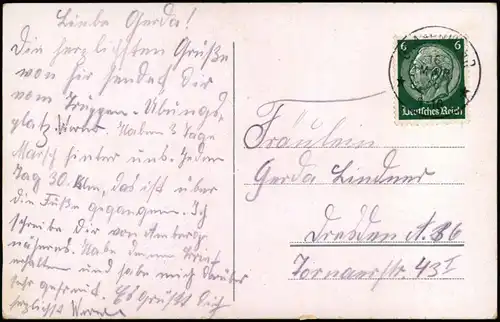 Liebe Gerda!
Die herzlichsten Grüße
von hier sendet Dir
vom Truppen-Übungs-
platz Werner. Haben 3 Tage
Marsch hinter uns. Jeden
Tag 30 Klm, das ist über
die Füße gegangen. Ich
schreibe Dir von Amberg
näheres. Habe deinen Brief
erhalten und habe mich darüber
sehr gefreut. Es Grüßt Dich
herzlichst Werner
6 6
Deutsches Reich
Fräulein
Gerda Lindner
Dresden A. 16
Tornaerstr. 43 I